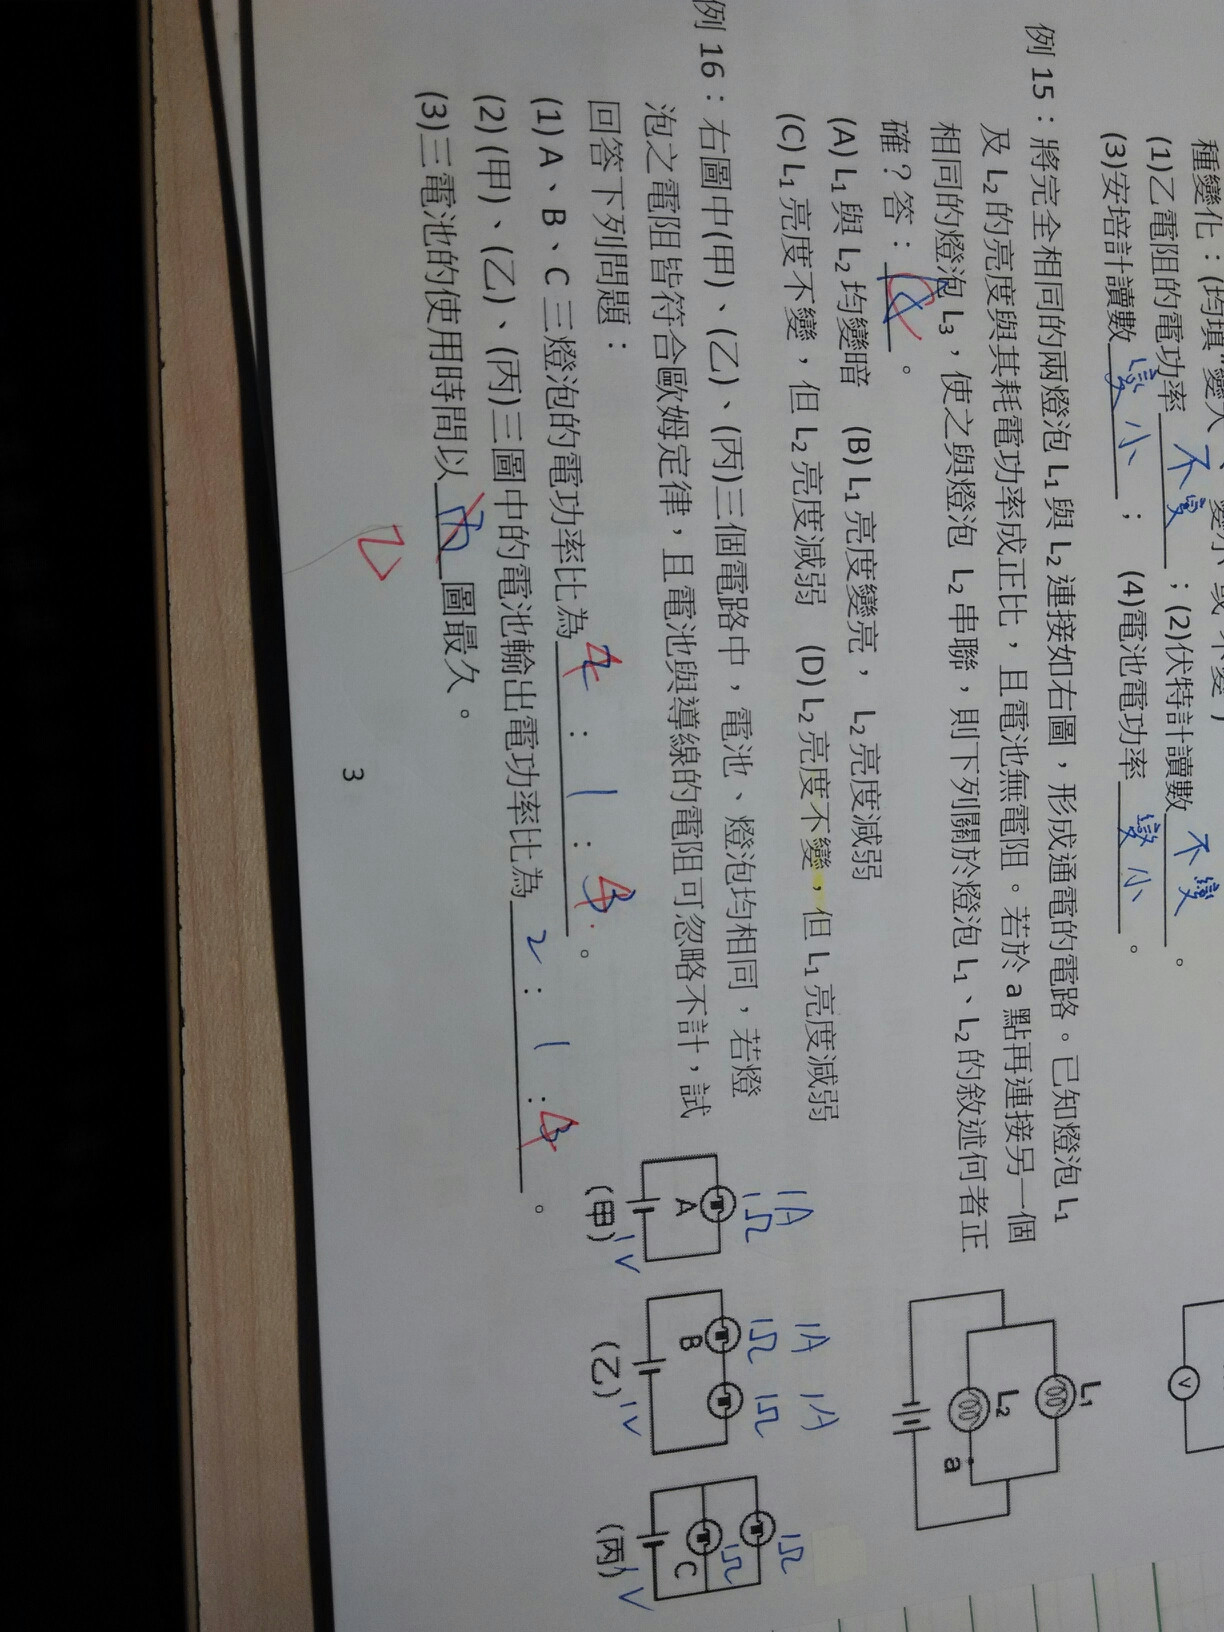 種變化：(均填"變大、變小或不變")
(1)乙電阻的電功率 不變 ；(2)伏特計讀數 不變 。
(3)安培計讀數 變小 ； (4)電池電功率 變小 。
V
例 15：將完全相同的兩燈泡 L₁ 與 L₂ 連接如右圖，形成通電的電路。已知燈泡 L₁
及 L₂ 的亮度與其耗電功率成正比，且電池無電阻。若於 a 點再連接另一個
相同的燈泡 L₃，使之與燈泡 L₂ 串聯，則下列關於燈泡 L₁、L₂ 的敘述何者正
確？答： 。
(A) L₁ 與 L₂ 均變暗 (B) L₁ 亮度變亮， L₂ 亮度減弱
(C) L₁ 亮度不變，但 L₂ 亮度減弱 (D) L₂ 亮度不變，但 L₁ 亮度減弱
L₁
L₂
a
例 16：右圖中(甲)、(乙)、(丙)三個電路中，電池、燈泡均相同，若燈
泡之電阻皆符合歐姆定律，且電池與導線的電阻可忽略不計，試
回答下列問題：
(1) A、B、C 三燈泡的電功率比為 4 : 1 : 4 。
(2) (甲)、(乙)、(丙)三圖中的電池輸出電功率比為 2 : 1 : 4 。
(3)三電池的使用時間以 丙 圖最久。
乙
1A
1Ω
A
(甲) 1V
1A 1A
1Ω 1Ω
B
(乙) 1V
1Ω
1Ω
C
(丙) 1V
3